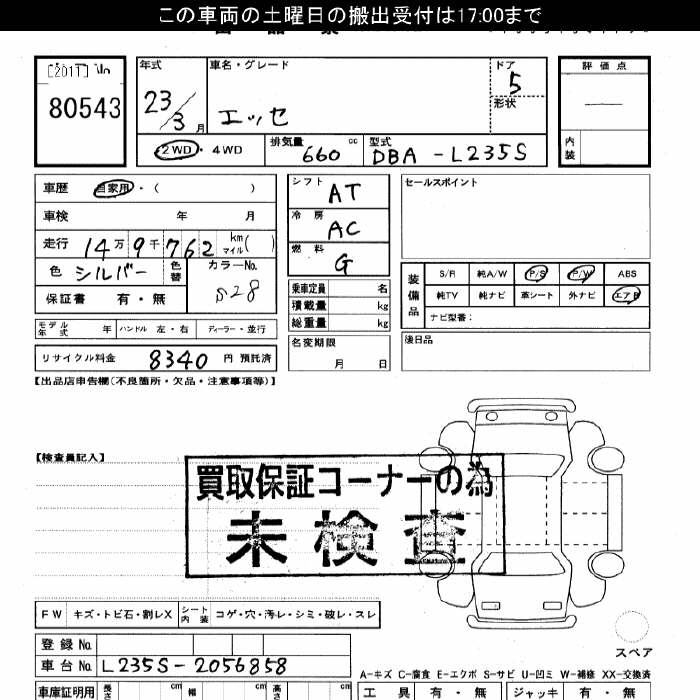 この車両の土曜日の搬出受付は17:00まで
[2011] No
80543
年式
23/3月
車名・グレード
エッセ
ドア
5
形状
評価点
内装
2WD・4WD
排気量 660 cc
型式 DBA-L235S
車歴 自家用・( )
車検 年 月
走行 14万9千762 km マイル( )
色 シルバー 色替
カラーNo. S28
保証書 有・無
シフト AT
冷房 AC
燃料 G
乗車定員 名
積載量 kg
総重量 kg
セールスポイント
装備品
S/R 純A/W P/S P/W ABS
純TV 純ナビ 革シート 外ナビ エアB
ナビ型番:
モデル年式 年 ハンドル 左・右 ディーラー・並行
名変期限
月 日
後日品
リサイクル料金 8340 円 預託済
【出品店申告欄(不良箇所・欠品・注意事項等)】
【検査員記入】
買取保証コーナーの為
未検査
FW キズ・トビ石・割レX シート内装 コゲ・穴・汚レ・シミ・破レ・スレ
スペア
登録No.
車台No. L235S-2056858
A-キズ C-腐食 E-エクボ S-サビ U-凹ミ W-補修 XX-交換済
車庫証明用 長さ cm 幅 cm 高さ cm
工具 有・無 ジャッキ 有・無